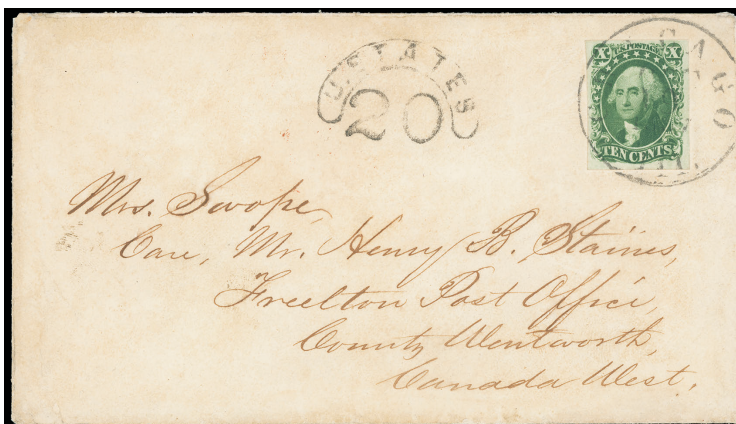 U.STATES
20
CAGO
ILL.
X U.S. POSTAGE X
TEN CENTS
Mrs. Swope,
Care, Mr. Henry B. Staines,
Freelton Post Office,
County Wentworth,
Canada West.